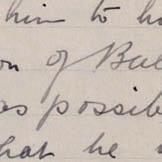 him to h
on of Bal
as possib
that he